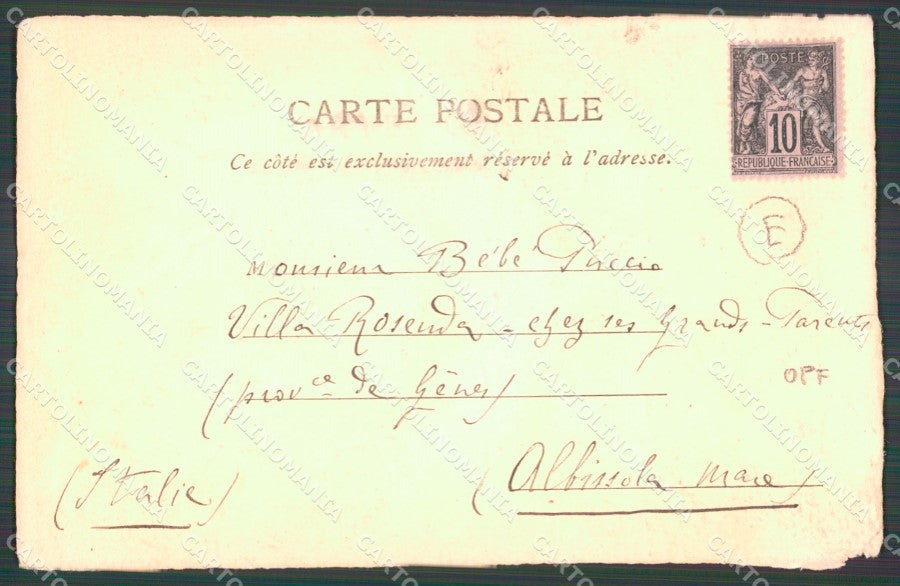 POSTE
10
REPUBLIQUE FRANCAISE
CARTE POSTALE
Ce côté est exclusivement réservé à l'adresse.
E
Monsieur Bébé Puccio
Villa Rosenda - chez ses Grands-Parents
(provce de Gênes)
OPF
(Italie)
(Albissola mare)
CARTOLINOMANIA